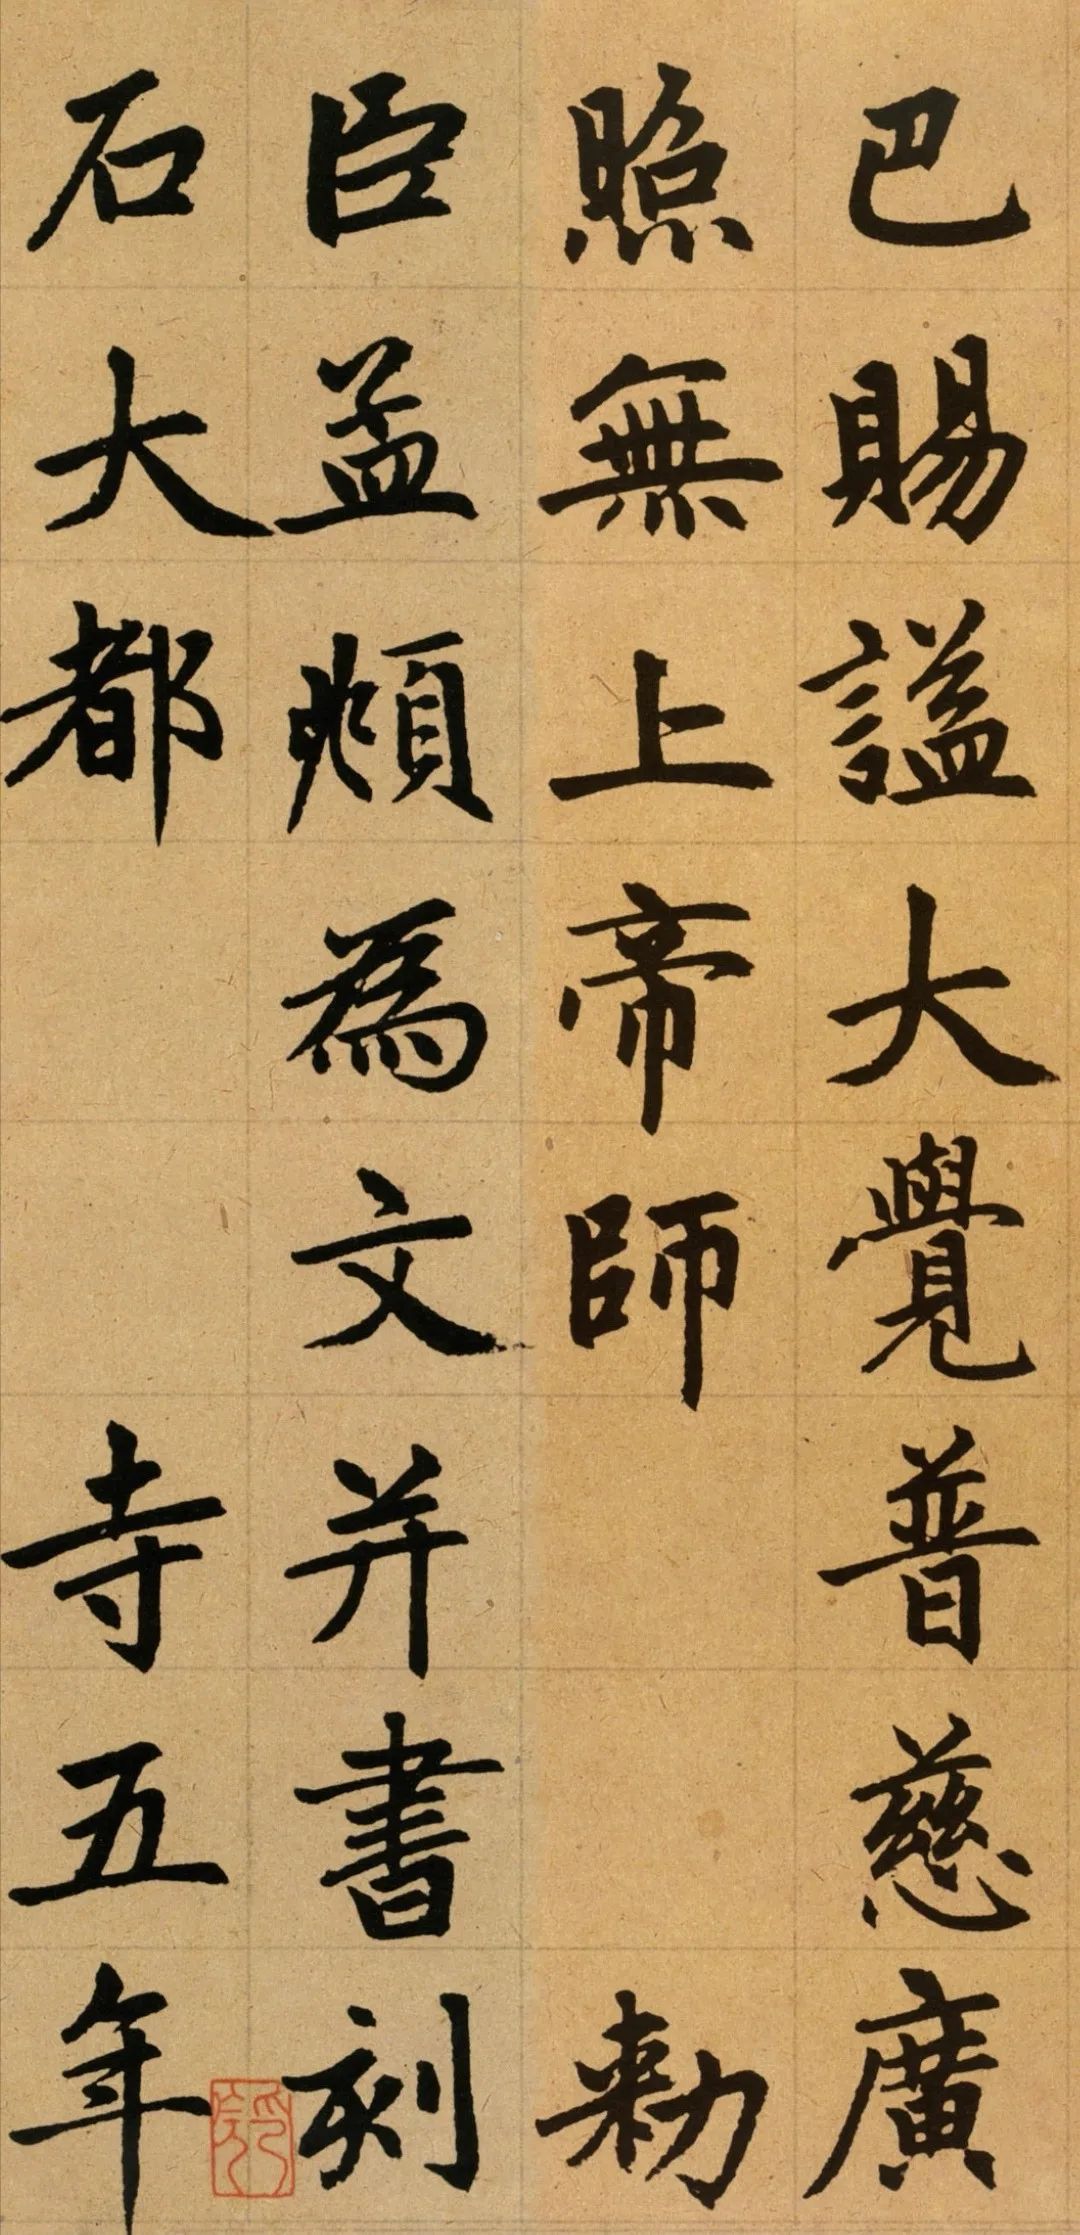 巴賜謚大覺普慈廣
照無上帝師敕
臣孟頫為文并書刻
石大都寺五年